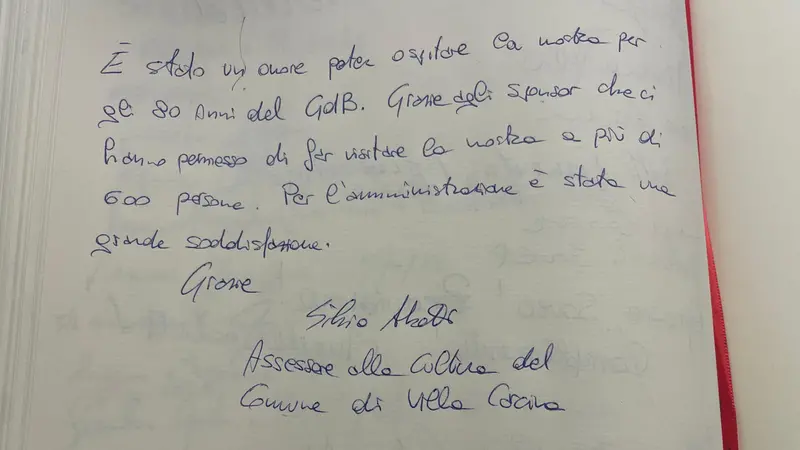 È stato un onore poter ospitare la mostra per
gli 80 Anni del GdB. Grazie agli sponsor che ci
hanno permesso di far visitare la mostra a più di
600 persone. Per l'amministrazione è stata una
grande soddisfazione.
Grazie
Silvio
Assessore alla Cultura del
Comune di Villa Carcina